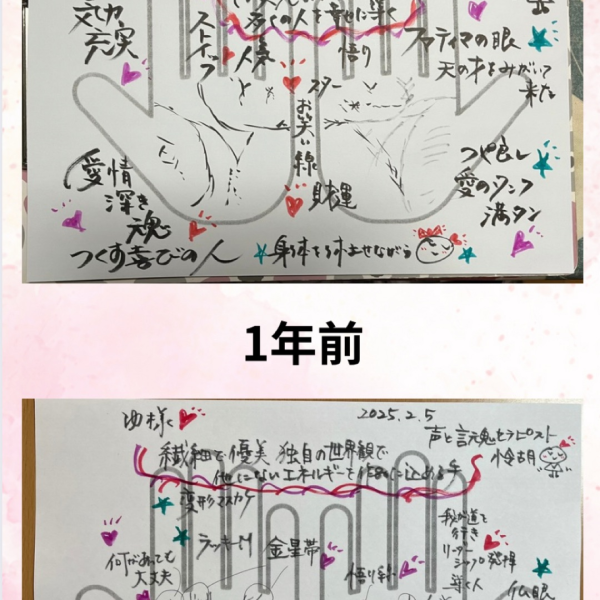 文才
充実
ストイック
多くの人を幸せに導く
人気
悟り
ファティマの眼
天の才をみがいて
来た
スター
お笑い線
財運
愛情
深き
魂
つや良し
愛のタンク
満タン
つくす喜びの人
身体を休ませながら
1年前
様
2025.2.5
声と言魂セラピスト
繊細で優美 独自の世界観で
他にないエネルギーを作品に込める手
変形マスカケ
ラッキーM
金星帯
何があっても
大丈夫
悟り線
我が道を
行き
リーダー
シップ発揮
導く人
仏眼